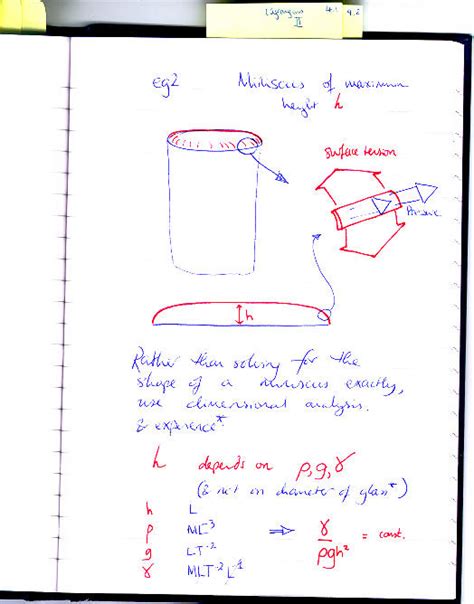 Lagrangian 4.1
II 4.2
eg2 Miniscus of maximum
height h
surface tension
Pressure
h
Rather than solving for the
shape of a miniscus exactly,
use dimensional analysis.
& experience*
h depends on ρ, g, γ
(& not on diameter of glass*)
h L
ρ ML⁻³ ⇒ γ/ρgh² = const.
g LT⁻²
γ MLT⁻²L⁻¹